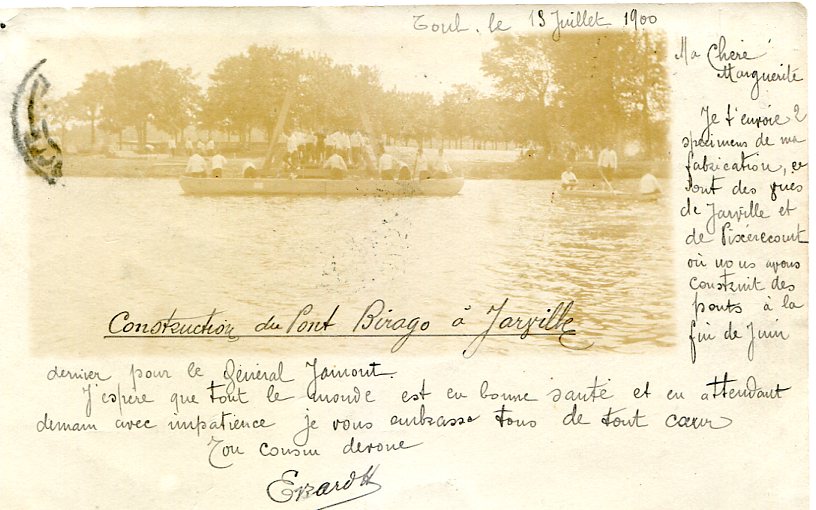 Toul, le 13 Juillet 1900
Ma Chère
Marguerite
Je t'envoie 2
spécimens de ma
fabrication, ce
sont des vues
de Jarville et
de Pixérecourt
où nous avons
construit des
ponts à la
fin de Juin
Construction du Pont Birago à Jarville
dernier pour le Général Jamont.
J'espère que tout le monde est en bonne santé et en attendant
demain avec impatience je vous embrasse tous de tout cœur
Ton cousin devoué